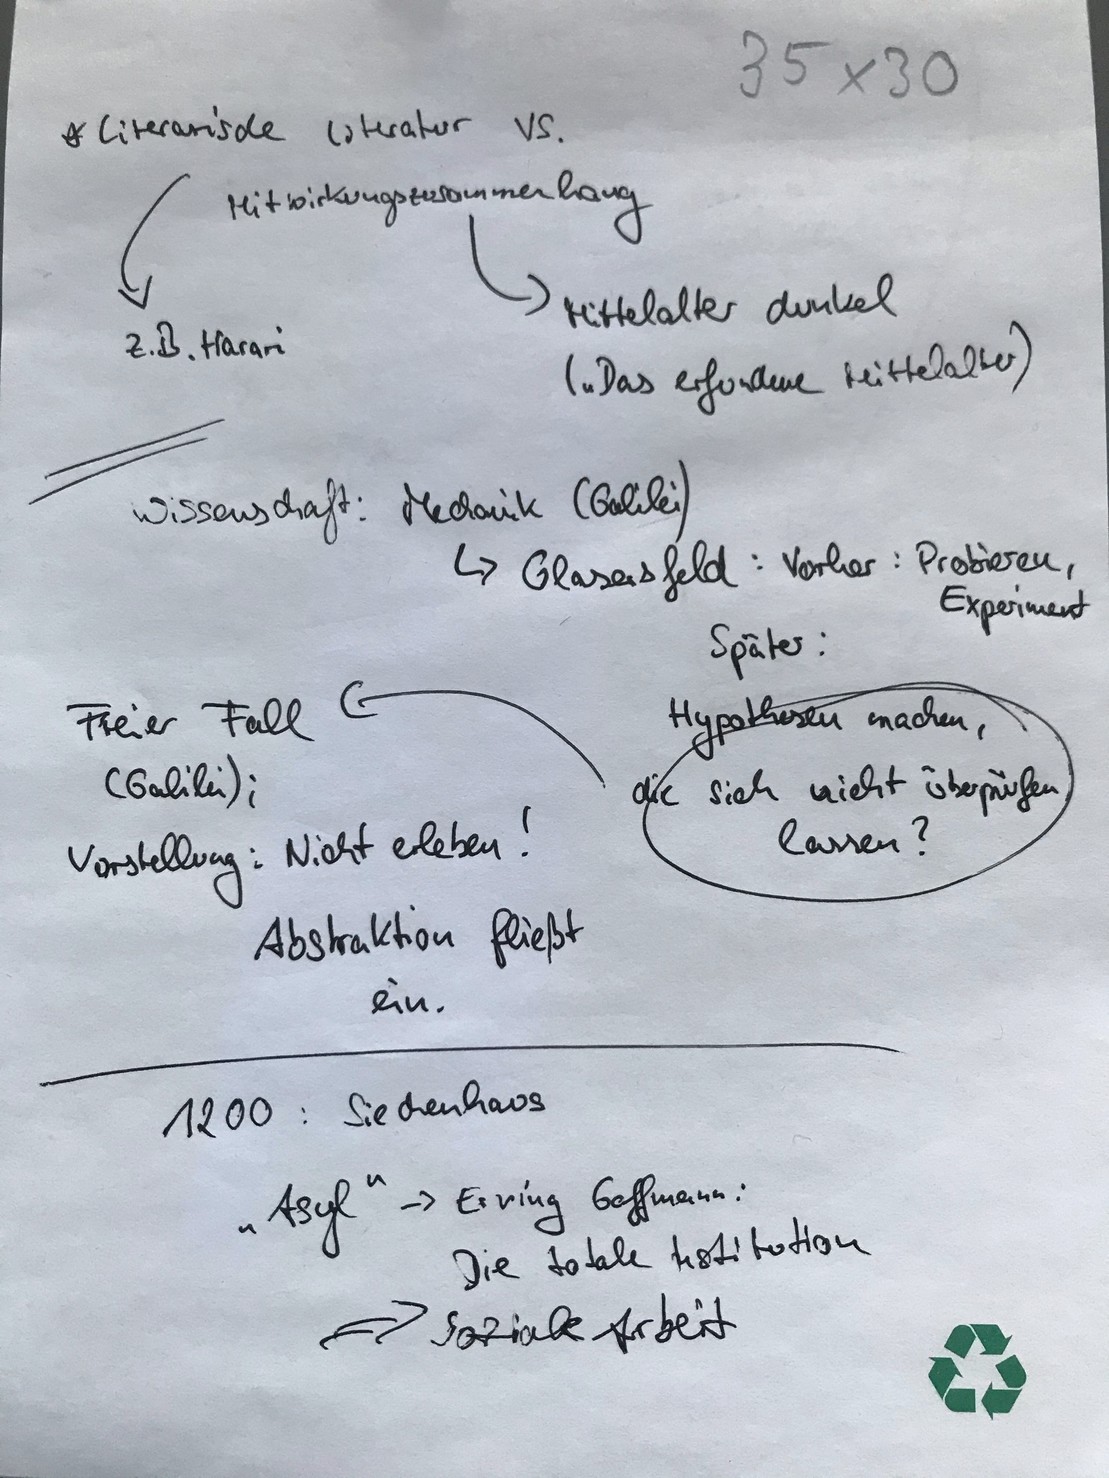 35 x 30
* Literarische Literatur vs.
Mitwirkungszusammenhang
z.B. Harari
Mittelalter dunkel
(„Das erfundene Mittelalter)
Wissenschaft: Mechanik (Galilei)
↳ Glasersfeld : Vorher : Probieren,
Experiment
Später :
Hypothesen machen,
die sich nicht überprüfen
lassen?
Freier Fall
(Galilei);
Vorstellung: Nicht erleben!
Abstraktion fließt
ein.
1200 : Siechenhaus
„Asyl" → Erving Goffmann:
Die totale Institution
⇒ Soziale Arbeit